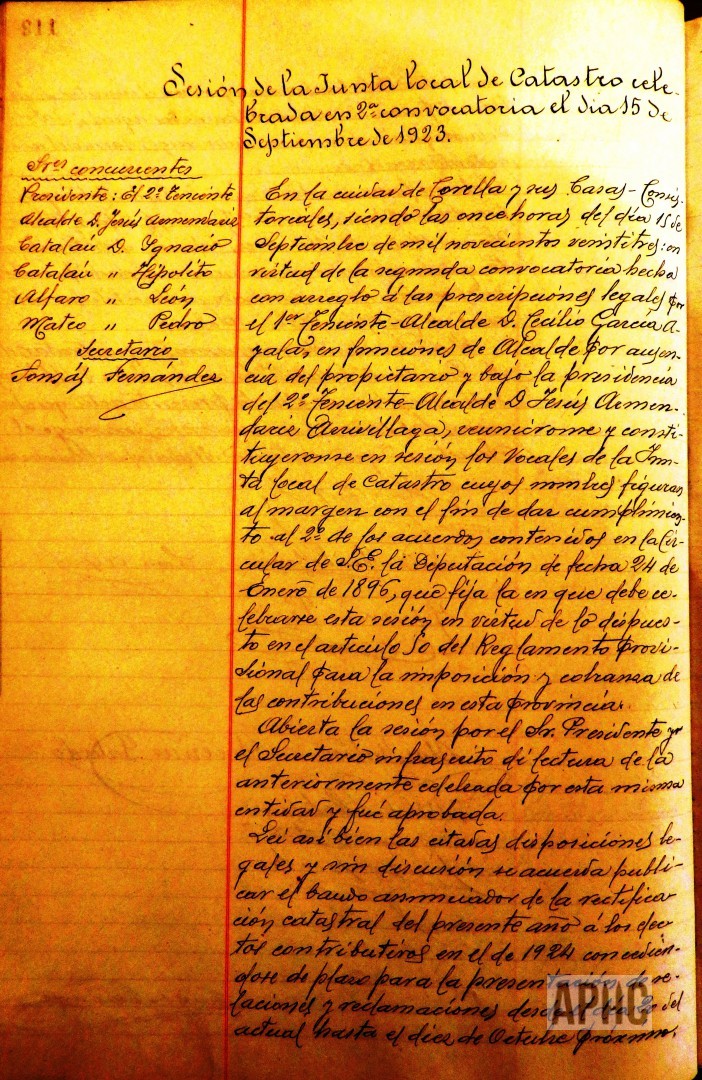 Sesión de la Junta local de Catastro cele-
brada en 2ª convocatoria el dia 15 de
Septiembre de 1923.
Sres concurrentes
Presidente: El 2º Teniente
Alcalde D. Jesús Armendariz
Catalán D. Ignacio
Catalán " Hipolito
Alfaro " León
Mateo " Pedro
Secretario
Tomás Fernández
En la ciudad de Corella y sus Casas-Consis-
toriales, siendo las once horas del dia 15 de
Septiembre de mil novecientos veintitres: en
virtud de la segunda convocatoria hecha
con arreglo á las prescripciones legales por
el 1er Teniente-Alcalde D. Cecilio García A-
yala, en funciones de Alcalde por ausen-
cia del propietario y bajo la presidencia
del 2º Teniente-Alcalde D Jesús Armen-
dariz Aurivillaga, reunieronse y consti-
tuyeronse en sesión los Vocales de la Jun-
ta local de Catastro cuyos nombres figuran
al margen con el fin de dar cumplimien-
to al 2º de los acuerdos contenidos en la Cir-
cular de S.E. la Diputación de fecha 24 de
Enero de 1896, que fija la en que debe ce-
lebrarse esta sesión en virtud de lo dispues-
to en el articulo 50 del Reglamento provi-
sional para la imposición y cobranza de
las contribuciones en esta provincia.
Abierta la sesión por el Sr. Presidente yo
el Secretario infrascrito di lectura de la
anteriormente celebrada por esta misma
entidad y fué aprobada.
Leí asi bien las citadas disposiciones le-
gales y sin discusión se acuerda publi-
car el bando anunciador de la rectifica-
ción catastral del presente año á los efec-
tos contributivos en el de 1924 concedien-
dose de plazo para la presentación de re-
laciones y reclamaciones desde el dia del
actual hasta el diez de Octubre próximo.
APHC